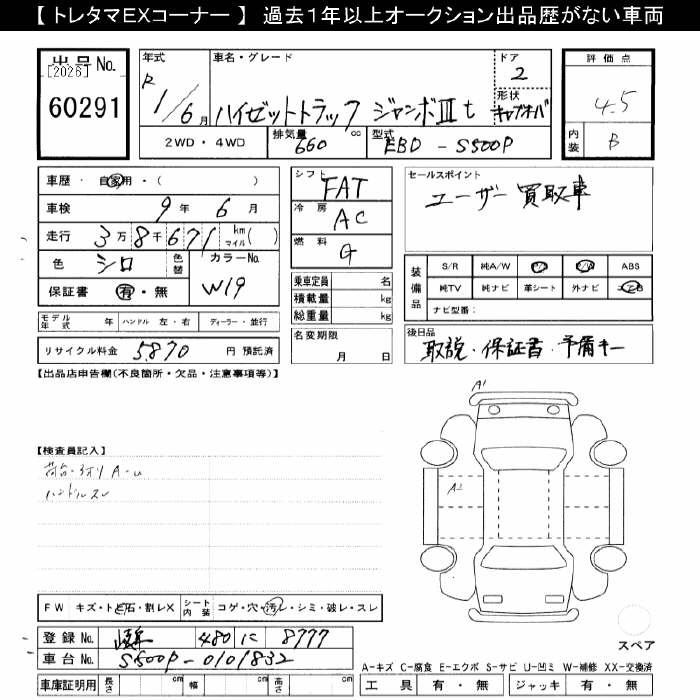 【 トレタマEXコーナー 】 過去1年以上オークション出品歴がない車両
出品 No.
[2026]
60291
年式
R 1/6月
車名・グレード
ハイゼットトラック ジャンボⅢt
ドア
2
形状
キャブオーバ
評価点
4.5
内装
B
2WD・4WD
排気量
660 cc
型式
EBD-S500P
車歴・自家用・( )
車検 9年 6月
走行 3万8千671 km マイル( )
色 シロ 色替
カラーNo.
W19
保証書 有・無
シフト
FAT
冷房
AC
燃料
G
乗車定員 名
積載量 kg
総重量 kg
名変期限
月 日
セールスポイント
ユーザー買取車
装備品
S/R 純A/W P/S P/W ABS
純TV 純ナビ 革シート 外ナビ エアB
ナビ型番:
モデル年式 年 ハンドル 左・右 ディーラー・並行
リサイクル料金 5,870 円 預託済
後日品
取説・保証書・予備キー
【出品店申告欄(不良箇所・欠品・注意事項等)】
A1
【検査員記入】
荷台・アオリ A-U
ハンドルスレ
A2
FW キズ・ト石・割レX
シート内装 コゲ・穴・汚レ・シミ・破レ・スレ
登録 No. 480 に 8777
車台 No. S500P-0101832
スペア
A-キズ C-腐食 E-エクボ S-サビ U-凹ミ W-補修 XX-交換済
車庫証明用 長さ cm 幅 cm 高さ cm
工具 有・無 ジャッキ 有・無